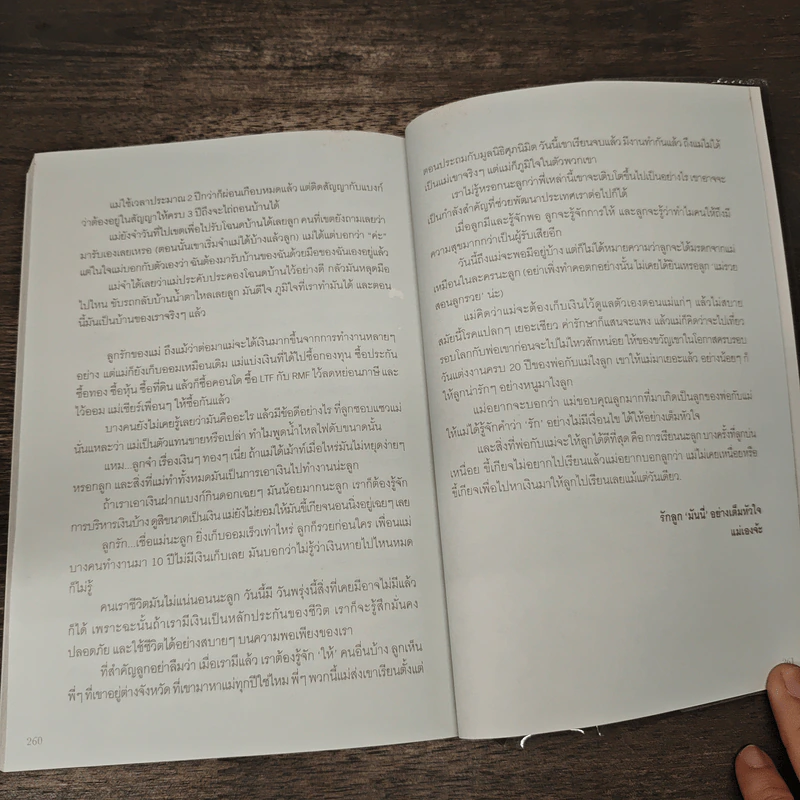 แม่ใช้เวลาประมาณ 2 ปีกว่าก็ผ่อนเกือบหมดแล้ว แต่ติดสัญญากับแบงก์
ว่าต้องอยู่ในสัญญาให้ครบ 3 ปีถึงจะไถ่ถอนบ้านได้
แม่ยังจำวันที่ไปเขตเพื่อไปรับโฉนดบ้านได้เลยลูก คนที่เขตยังถามเลยว่า
มารับเองเลยเหรอ (ตอนนั้นเขาเริ่มจำแม่ได้บ้างแล้วลูก) แม่ได้แต่บอกว่า "ค่ะ"
แต่ในใจแม่บอกกับตัวเองว่า ฉันต้องมารับบ้านของฉันด้วยมือของฉันเองอยู่แล้ว
แม่จำได้เลยว่าแม่ประคับประคองโฉนดบ้านไว้อย่างดี กลัวมันหลุดมือ
ไปไหน ขับรถกลับบ้านน้ำตาไหลเลยลูก มันดีใจ ภูมิใจที่เราทำมันได้ และตอน
นี้มันเป็นบ้านของเราจริงๆ แล้ว
ลูกรักของแม่ ถึงแม้ว่าต่อมาแม่จะได้เงินมากขึ้นจากการทำงานหลายๆ
อย่าง แต่แม่ก็ยังเก็บออมเหมือนเดิม แม่แบ่งเงินที่ได้ไปซื้อกองทุน ซื้อประกัน
ซื้อทอง ซื้อหุ้น ซื้อที่ดิน แล้วก็ซื้อคอนโด ซื้อ LTF กับ RMF ไว้ลดหย่อนภาษี และ
ไว้ออม แม่เชียร์เพื่อนๆ ให้ซื้อกันแล้ว
บางคนยังไม่เคยรู้เลยว่ามันคืออะไร แล้วมีข้อดีอย่างไร ที่ลูกชอบแซวแม่
นั่นแหละว่า แม่เป็นตัวแทนขายหรือเปล่า ทำไมพูดน้ำไหลไฟดับขนาดนั้น
แหม...ลูกจ๋า เรื่องเงินๆ ทองๆ เนี่ย ถ้าแม่ได้เม้าท์เมื่อไหร่มันไม่หยุดง่ายๆ
หรอกลูก และสิ่งที่แม่ทำทั้งหมดมันเป็นการเอาเงินไปทำงานน่ะลูก
ถ้าเราเอาเงินฝากแบงก์กินดอกเฉยๆ มันน้อยมากนะลูก เราก็ต้องรู้จัก
การบริหารเงินบ้าง ดูสิขนาดเป็นเงิน แม่ยังไม่ยอมให้มันขี้เกียจนอนนิ่งอยู่เฉยๆ เลย
ลูกรัก...เชื่อแม่นะลูก ยิ่งเก็บออมเร็วเท่าไหร่ ลูกก็รวยก่อนใคร เพื่อนแม่
บางคนทำงานมา 10 ปีไม่มีเงินเก็บเลย มันบอกว่าไม่รู้ว่าเงินหายไปไหนหมด
ก็ไม่รู้
คนเราชีวิตมันไม่แน่นอนนะลูก วันนี้มี วันพรุ่งนี้สิ่งที่เคยมีอาจไม่มีแล้ว
ก็ได้ เพราะฉะนั้นถ้าเรามีเงินเป็นหลักประกันของชีวิต เราก็จะรู้สึกมั่นคง
ปลอดภัย และใช้ชีวิตได้อย่างสบายๆ บนความพอเพียงของเรา
ที่สำคัญลูกอย่าลืมว่า เมื่อเรามีแล้ว เราต้องรู้จัก 'ให้' คนอื่นบ้าง ลูกเห็น
พี่ๆ ที่เขาอยู่ต่างจังหวัด ที่เขามาหาแม่ทุกปีใช่ไหม พี่ๆ พวกนี้แม่ส่งเขาเรียนตั้งแต่
260
ตอนประถมกับมูลนิธิศุภนิมิต วันนี้เขาเรียนจบแล้ว มีงานทำกันแล้ว ถึงแม่ไม่ได้
เป็นแม่เขาจริงๆ แต่แม่ก็ภูมิใจในตัวพวกเขา
เราไม่รู้หรอกนะลูกว่าพี่เหล่านี้เขาจะเติบโตขึ้นไปเป็นอย่างไร เขาอาจจะ
เป็นกำลังสำคัญที่ช่วยพัฒนาประเทศเราต่อไปก็ได้
เมื่อลูกมีและรู้จักพอ ลูกจะรู้จักการให้ และลูกจะรู้ว่าทำไมคนให้ถึงมี
ความสุขมากกว่าเป็นผู้รับเสียอีก
วันนี้ถึงแม่จะพอมีอยู่บ้าง แต่ก็ไม่ได้หมายความว่าลูกจะได้มรดกจากแม่
เหมือนในละครนะลูก (อย่าเพิ่งทำคอตกอย่างนั้น ไม่เคยได้ยินเหรอลูก 'แม่รวย
สอนลูกรวย' น่ะ)
แม่คิดว่าแม่จะต้องเก็บเงินไว้ดูแลตัวเองตอนแม่แก่ๆ แล้วไม่สบาย
สมัยนี้โรคแปลกๆ เยอะเชียว ค่ารักษาก็แสนจะแพง แล้วแม่ก็คิดว่าจะไปเที่ยว
รอบโลกกับพ่อเขาก่อนจะไปไม่ไหวสักหน่อย ให้ของขวัญเขาในโอกาสครบรอบ
วันแต่งงานครบ 20 ปีของพ่อกับแม่ไงลูก เขาให้แม่มาเยอะแล้ว อย่างน้อยๆ ก็
ให้ลูกน่ารักๆ อย่างหนูมาไงลูก
แม่อยากจะบอกว่า แม่ขอบคุณลูกมากที่มาเกิดเป็นลูกของพ่อกับแม่
ให้แม่ได้รู้จักคำว่า 'รัก' อย่างไม่มีเงื่อนไข ได้ให้อย่างเต็มหัวใจ
และสิ่งที่พ่อกับแม่จะให้ลูกได้ดีที่สุด คือ การเรียนนะลูก บางครั้งที่ลูกบ่น
เหนื่อย ขี้เกียจไม่อยากไปเรียนแล้วแม่อยากบอกลูกว่า แม่ไม่เคยเหนื่อยหรือ
ขี้เกียจเพื่อไปหาเงินมาให้ลูกไปเรียนเลยแม้แต่วันเดียว.
รักลูก 'มันนี่' อย่างเต็มหัวใจ
แม่เองจ้ะ